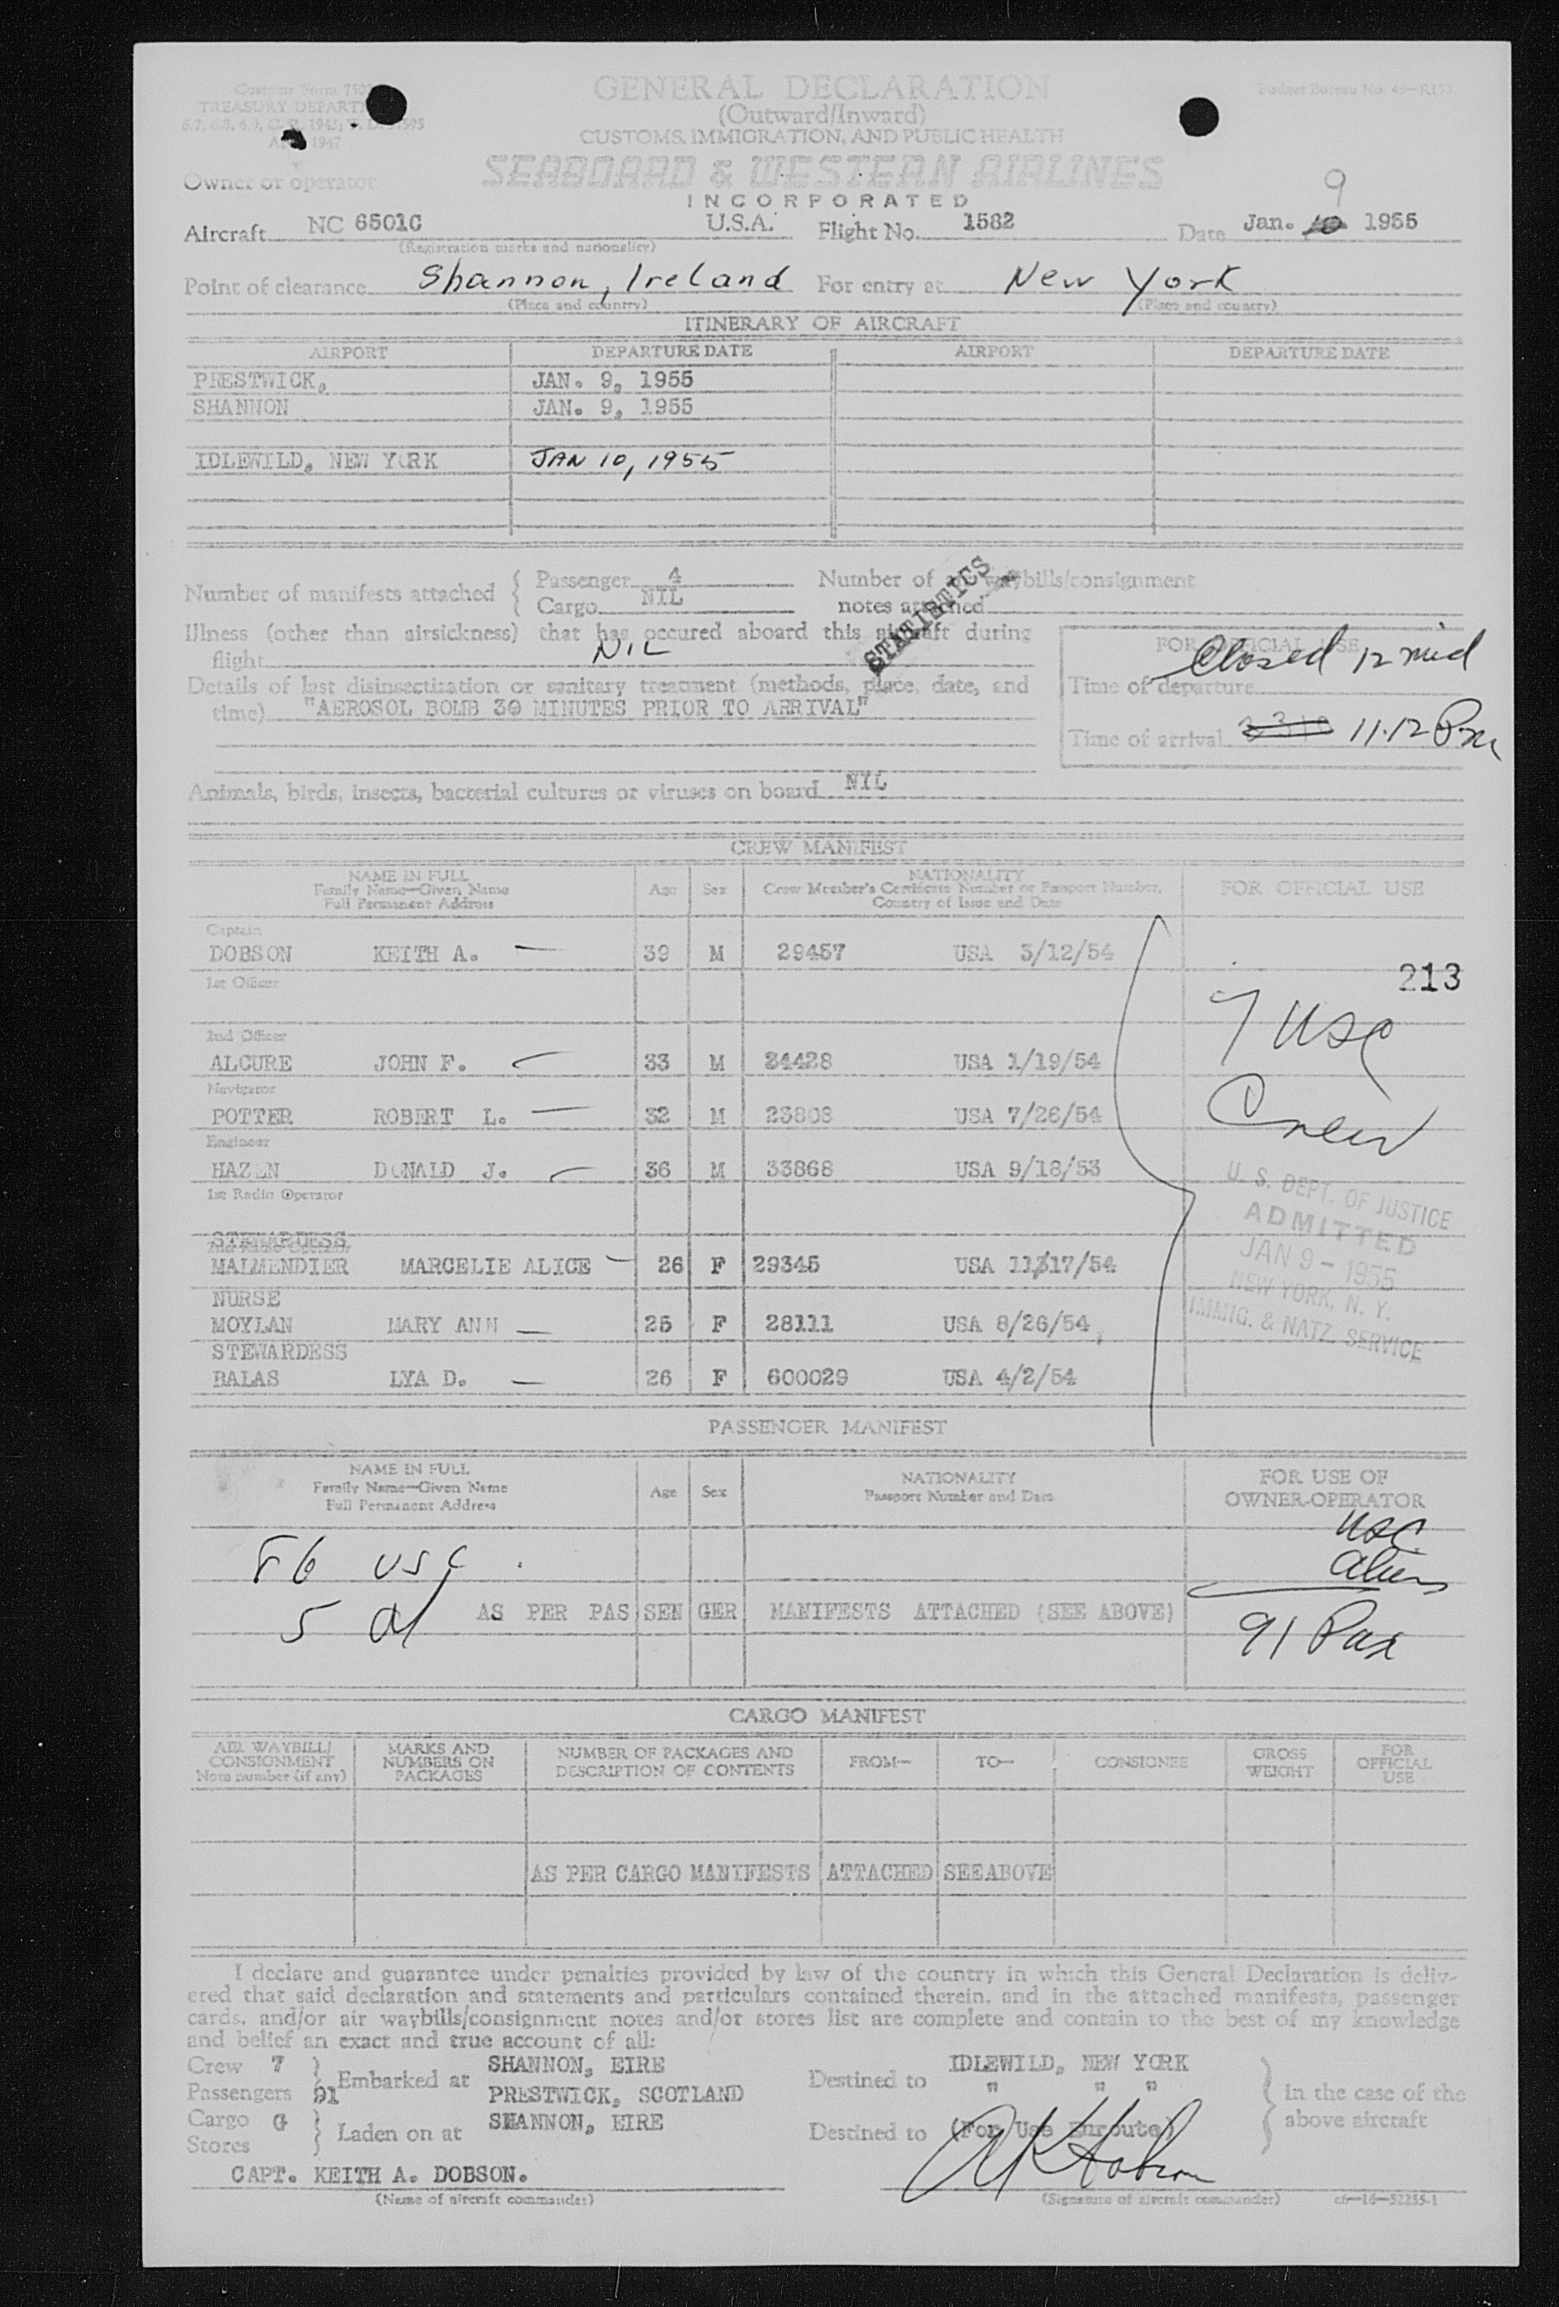 Customs Form 750
TREASURY DEPART
GENERAL DECLARATION
(Outward/Inward)
CUSTOMS, IMMIGRATION, AND PUBLIC HEALTH
SEABOARD & WESTERN AIRLINES
INCORPORATED
1947
Owner or operator
9
Aircraft NC 6501C U.S.A. Flight No. 1582 Date Jan. 10 1955
(Registration marks and nationality)
Point of clearance Shannon, Ireland For entry at New York
(Place and country) (Place and country)
ITINERARY OF AIRCRAFT
AIRPORT DEPARTURE DATE AIRPORT DEPARTURE DATE
PRESTWICK, JAN. 9, 1955
SHANNON JAN. 9, 1955
IDLEWILD, NEW YORK JAN 10, 1955
Number of manifests attached { Passenger 4
Cargo NIL
Number of waybills/consignment
notes attached
STATISTICS
Illness (other than airsickness) that has occured aboard this aircraft during
flight NIL
Details of last disinsectization or sanitary treatment (methods, place, date, and
time) "AEROSOL BOMB 30 MINUTES PRIOR TO ARRIVAL"
FOR OFFICIAL USE
Closed 12 mid
Time of departure
Time of arrival 11.12 Pm
Animals, birds, insects, bacterial cultures or viruses on board NYL
CREW MANIFEST
NAME IN FULL
Family Name—Given Name
Full Permanent Address
Age Sex
NATIONALITY
Crew Member's Certificate Number or Passport Number,
Country of Issue and Date
FOR OFFICIAL USE
Captain
DOBSON KEITH A. — 39 M 29457 USA 3/12/54
213
1st Officer
2nd Officer
ALCURE JOHN F. — 33 M 34428 USA 1/19/54
7 USC
Crew
Navigator
POTTER ROBERT L. — 32 M 23808 USA 7/26/54
Engineer
HAZEN DONALD J. — 36 M 33868 USA 9/18/53
1st Radio Operator
STEWARDESS
2nd Radio Operator
MALMENDIER MARCELIE ALICE — 26 F 29345 USA 11/17/54
NURSE
MOYLAN MARY ANN — 25 F 28111 USA 8/26/54
STEWARDESS
BALAS LYA D. — 26 F 600029 USA 4/2/54
U. S. DEPT. OF JUSTICE
ADMITTED
JAN 9 - 1955
NEW YORK, N. Y.
IMMIG. & NATZ. SERVICE
PASSENGER MANIFEST
NAME IN FULL
Family Name—Given Name
Full Permanent Address
Age Sex
NATIONALITY
Passport Number and Date
FOR USE OF
OWNER-OPERATOR
USC
Aliens
86 USC
5 al AS PER PASSENGER MANIFESTS ATTACHED (SEE ABOVE)
91 Pax
CARGO MANIFEST
AIR WAYBILL/
CONSIGNMENT
Note number (if any)
MARKS AND
NUMBERS ON
PACKAGES
NUMBER OF PACKAGES AND
DESCRIPTION OF CONTENTS
FROM—
TO—
CONSIGNEE
GROSS
WEIGHT
FOR
OFFICIAL
USE
AS PER CARGO MANIFESTS ATTACHED SEE ABOVE
I declare and guarantee under penalties provided by law of the country in which this General Declaration is deliv-
ered that said declaration and statements and particulars contained therein, and in the attached manifests, passenger
cards, and/or air waybills/consignment notes and/or stores list are complete and contain to the best of my knowledge
and belief an exact and true account of all:
Crew 7 } Embarked at SHANNON, EIRE Destined to IDLEWILD, NEW YORK } in the case of the
Passengers 91 PRESTWICK, SCOTLAND " " "
Cargo G } Laden on at SHANNON, EIRE Destined to (For Use Enroute) above aircraft
Stores
CAPT. KEITH A. DOBSON.
(Name of aircraft commander) (Signature of aircraft commander) c6—16—52255-1